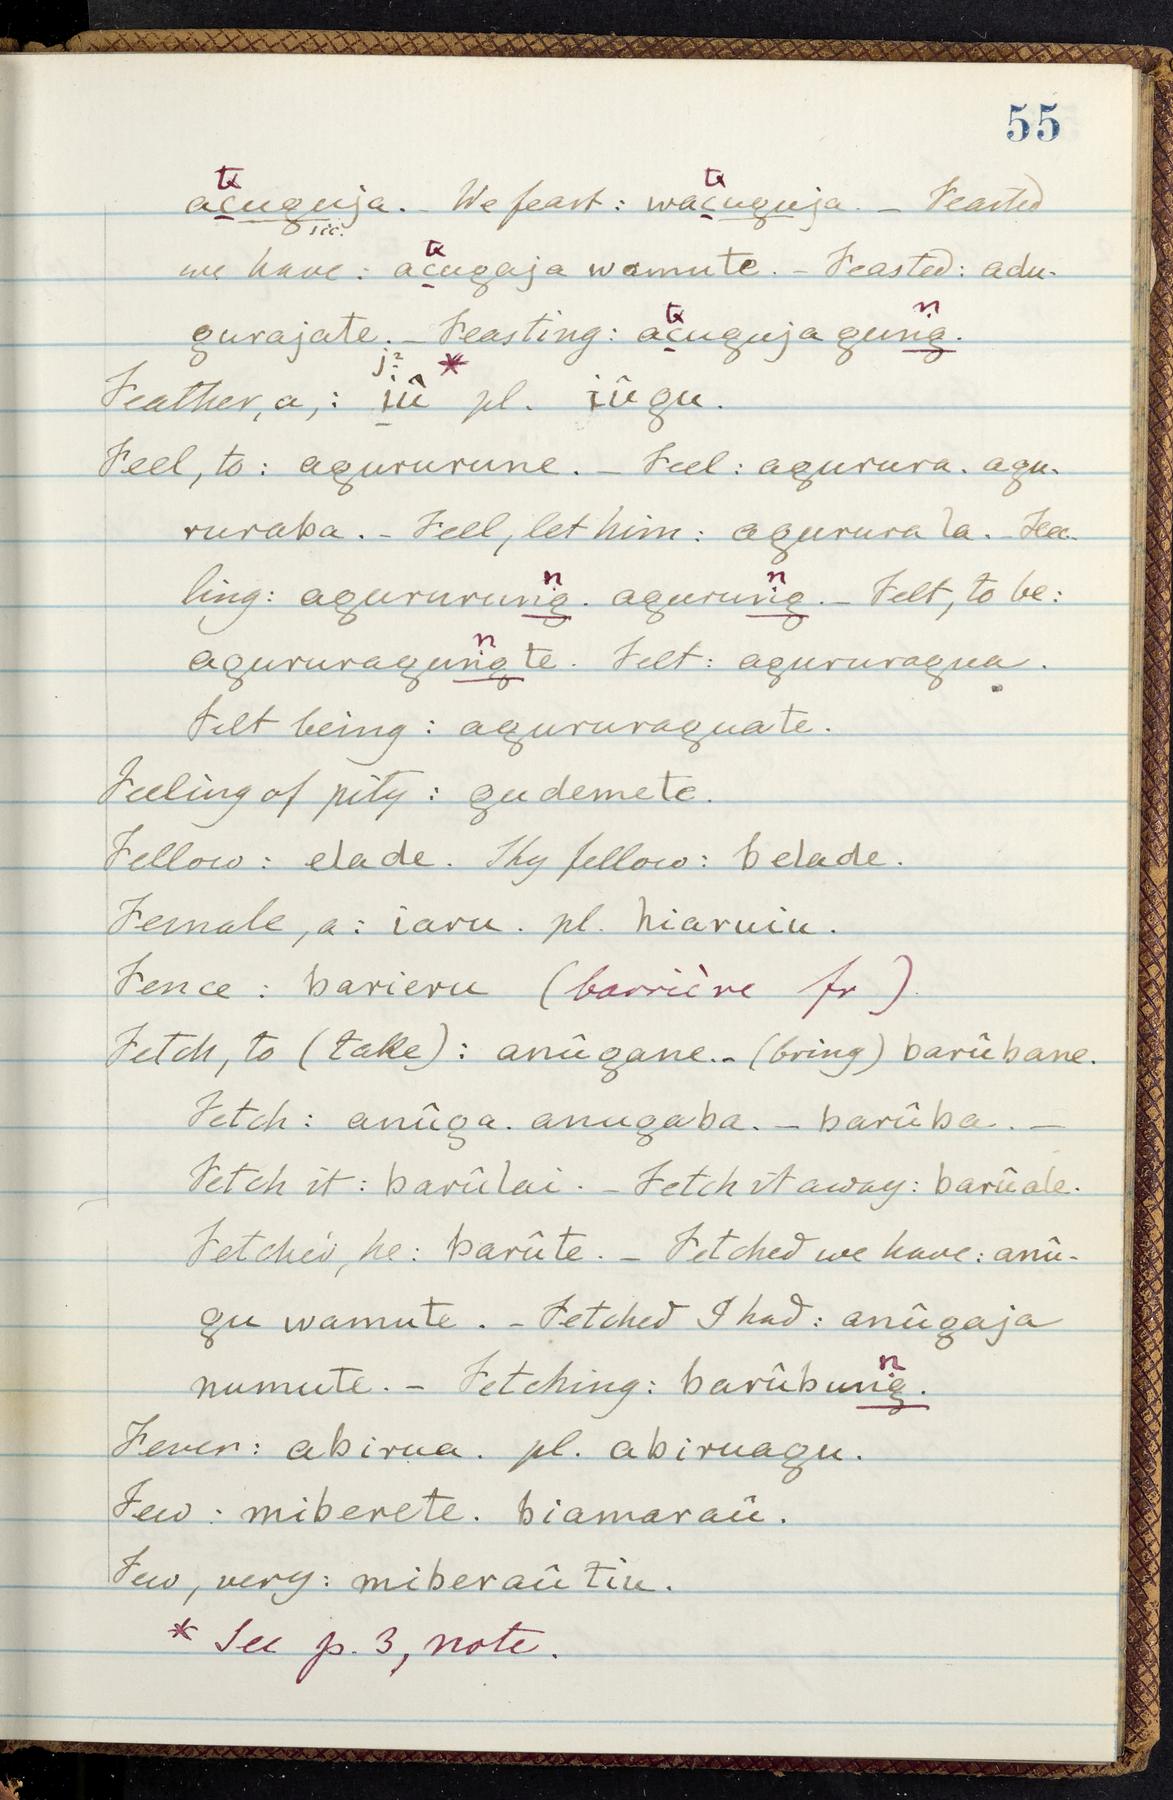 55
acuguja. – We feast: wacuguja. – Feasted
we have: acugaja wamute. – Feasted: adu-
gurajate. – Feasting: acuguja gung.
Feather, a,: iû * pl. iûgu.
Feel, to: agururune. – Feel: agurura. agu-
ruraba. – Feel, let him: agurura la. – Fee-
ling: agururung. agurung. – Felt, to be:
agururagungte. Felt: agururagua.
Felt being: agururaguate.
Feeling of pity: gudemete.
Fellow: elade. Thy fellow: belade.
Female, a: iaru. pl. hiaruiu.
Fence: barieru (barrière fr)
Fetch, to (take): anûgane. – (bring) barûbane.
Fetch: anûga. anugaba. – barûba. –
Fetch it: barûlai. – Fetch it away: barûale.
Fetched, he: barûte. – Fetched we have: anû-
gu wamute. – Fetched I had: anûgaja
numute. – Fetching: barûbung.
Fever: abirua. pl. abiruagu.
Few: miberete. biamaraû.
Few, very: miberaûtiu.
* See p. 3, note.